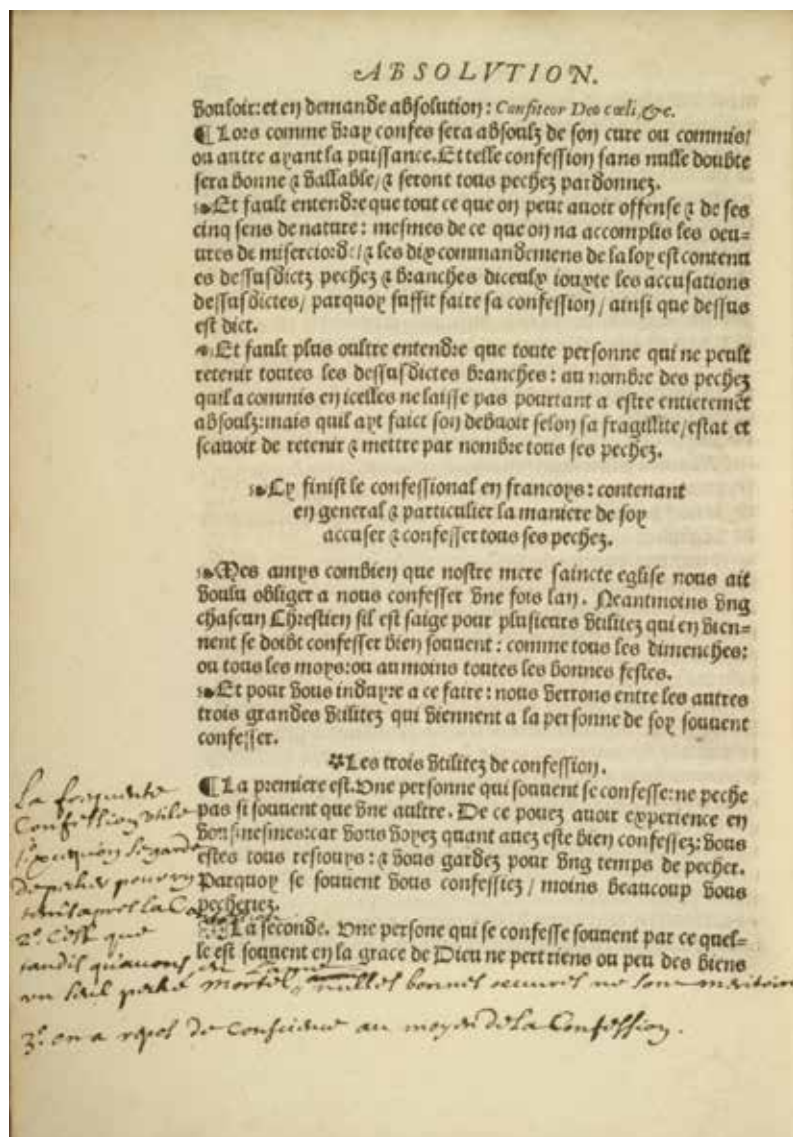 ABSOLVTION.
vouloir: et en demande absolution: Confiteor Deo cœli, &c.
¶ Lors comme vray confes sera absoulz de son cure ou commis/
ou autre ayant la puissance. Et telle confession sans nulle doubte
sera bonne & vallable/ & seront tous pechez pardonnez.
Et fault entendre que tout ce que on peut auoir offense & de ses
cinq sens de nature: mesmes de ce que on na accomplis les oeu=
ures de misericorde/ & les dix commandemens de la loy est contenu
es dessusdictz pechez & branches diceulx iouxte les accusations
dessusdictes/ parquoy suffit faire sa confession/ ainsi que dessus
est dict.
Et fault plus oultre entendre que toute personne qui ne peult
retenir toutes les dessusdictes branches: au nombre des pechez
quil a commis en icelles ne laisse pas pourtant a estre entieremēt
absoulz: mais quil ayt faict son debuoir selon sa fragillite/ estat et
scauoir de retenir & mettre par nombre tous ses pechez.
Cy finist le confessional en francoys: contenant
en general & particulier la maniere de soy
accuser & confesser tous ses pechez.
Mes amys combien que nostre mere saincte eglise nous ait
voulu obliger a nous confesser vne fois lan. Neantmoins vng
chascun Chrestien sil est saige pour plusieurs vtilitez qui en vien=
nent se doibt confesser bien souuent: comme tous les dimenches:
ou tous les moys: ou au moins toutes les bonnes festes.
Et pour vous induyre a ce faire: nous verrons entre les autres
trois grandes vtilitez qui viennent a la personne de soy souuent
confesser.
Les trois vtilitez de confession.
¶ La premiere est. Vne personne qui souuent se confesse: ne peche
pas si souuent que vne aultre. De ce pouez auoir experience en
vousmesmes: car vous voyez quant auez este bien confessez: vous
estes tous resiouys: & vous gardez pour vng temps de pecher.
Parquoy se souuent vous confessiez/ moins beaucoup vous
pecheriez.
La seconde. Vne persone qui se confesse souuent par ce quel=
le est souuent en la grace de Dieu ne pert riens ou peu des biens
La frequente
Confession utile
se garde
de pecher pour
apres la
2º. C'est que
tandis qu'auons
un seul peché mortel, nulles bonnes oeuures ne sont meritoir
3º. on a repos de Conscience au moyen de la Confession.